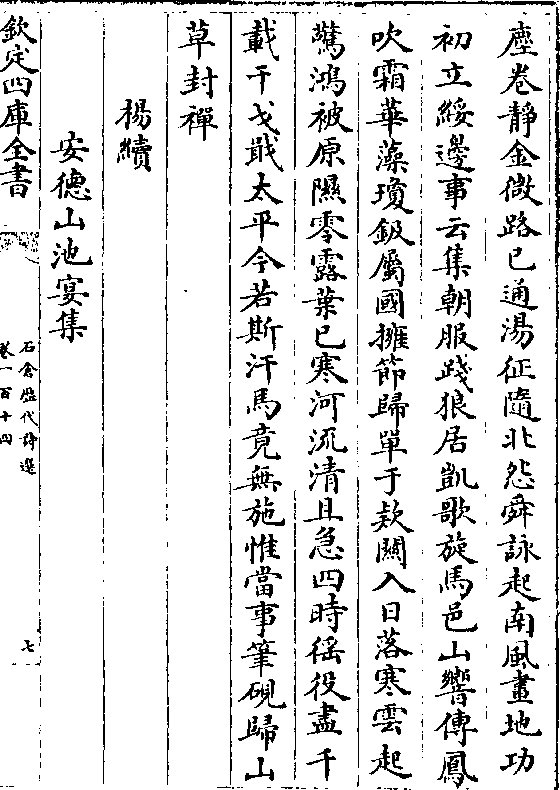 塵卷靜金微路已通湯征隨北怨舜詠起南風畫地功
初立綏邊事云集朝服踐狼居凱歌旋馬邑山響傳鳳
吹霜華藻瓊鈒屬國擁節歸單于欵關入日落寒雲起
驚鴻被原隰零露葉已寒河流清且急四時徭役盡千
載干戈戢太平今若斯汗馬竟無施惟當事筆硯歸山
草封禪
楊續
安德山池宴集
欽定四庫全書
石倉歷代詩選
卷一百十四
七